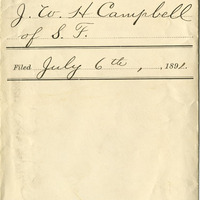 J. W. H Campbell
of S. F.
Filed July 6th, 1891.